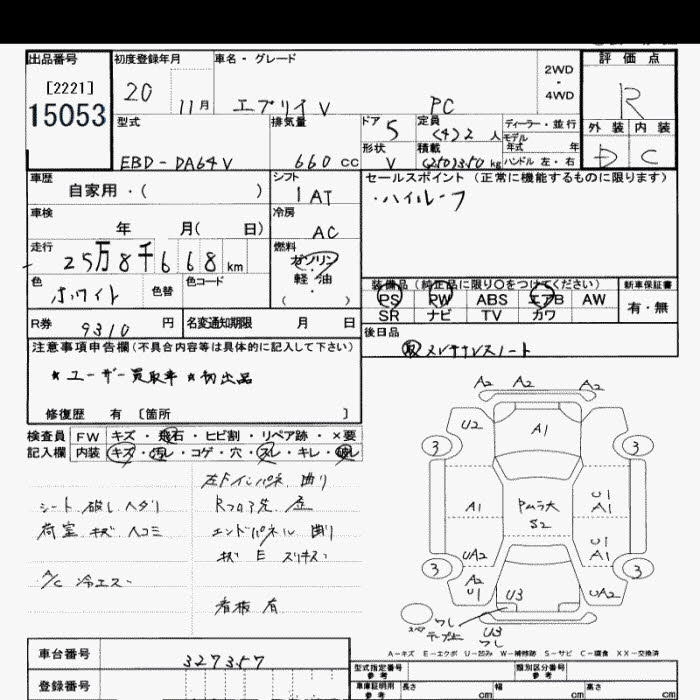 出品番号
[2221]
15053
初度登録年月
20 11月
車名・グレード
エブリイV PC
2WD
・
4WD
評価点
R
外装 内装
D C
型式
EBD-DA64V
排気量
660 cc
ドア
5
定員
(4)2 人
ディーラー・並行
モデル
年式 年
形状
V
積載
(250)350 kg
ハンドル 左・右
車歴
自家用・( )
シフト
AT
セールスポイント (正常に機能するものに限ります)
・ハイルーフ
車検
年 月( 日)
冷房
AC
走行
25万8千668km
燃料
ガソリン
軽・油
( )
色
ホワイト
色替
色コード
装備品(純正品に限り○をつけてください)
新車保証書
PS PW ABS エアB AW
SR ナビ TV カワ
有・無
R券
9310 円
名変通知期限 月 日
後日品
取メンテナンスノート
注意事項申告欄(不具合内容等は具体的に記入して下さい)
★ユーザー買取車 ★初出品
修復歴 有 〔箇所 〕
検査員
記入欄
FW キズ・飛石・ヒビ割・リペア跡・×要
内装 キズ・汚レ・コゲ・穴・スレ・キレ・破レ
左Fインパネ 曲り
シート破レ ヘタリ
Rフロア先 歪
荷室 キズ ヘコミ
エンドパネル 曲り
キズ E スリキズ
A/C 冷エズ
看板 有
A2 A2 A2
U2 A1
3 3
A1 Pムラ大 S2 U1 A1
UA2 U1 A1
3 3
A2 U1 U3 UA2
スペア
ワレ
U3
ワレ
A-キズ E-エクボ U-凹み W-補修跡 S-サビ C-腐食 XX-交換済
車台番号
327357
登録番号
型式指定番号
参考
類別区分番号
参考
車庫証明用
参考
長さ cm
幅 cm
高さ cm